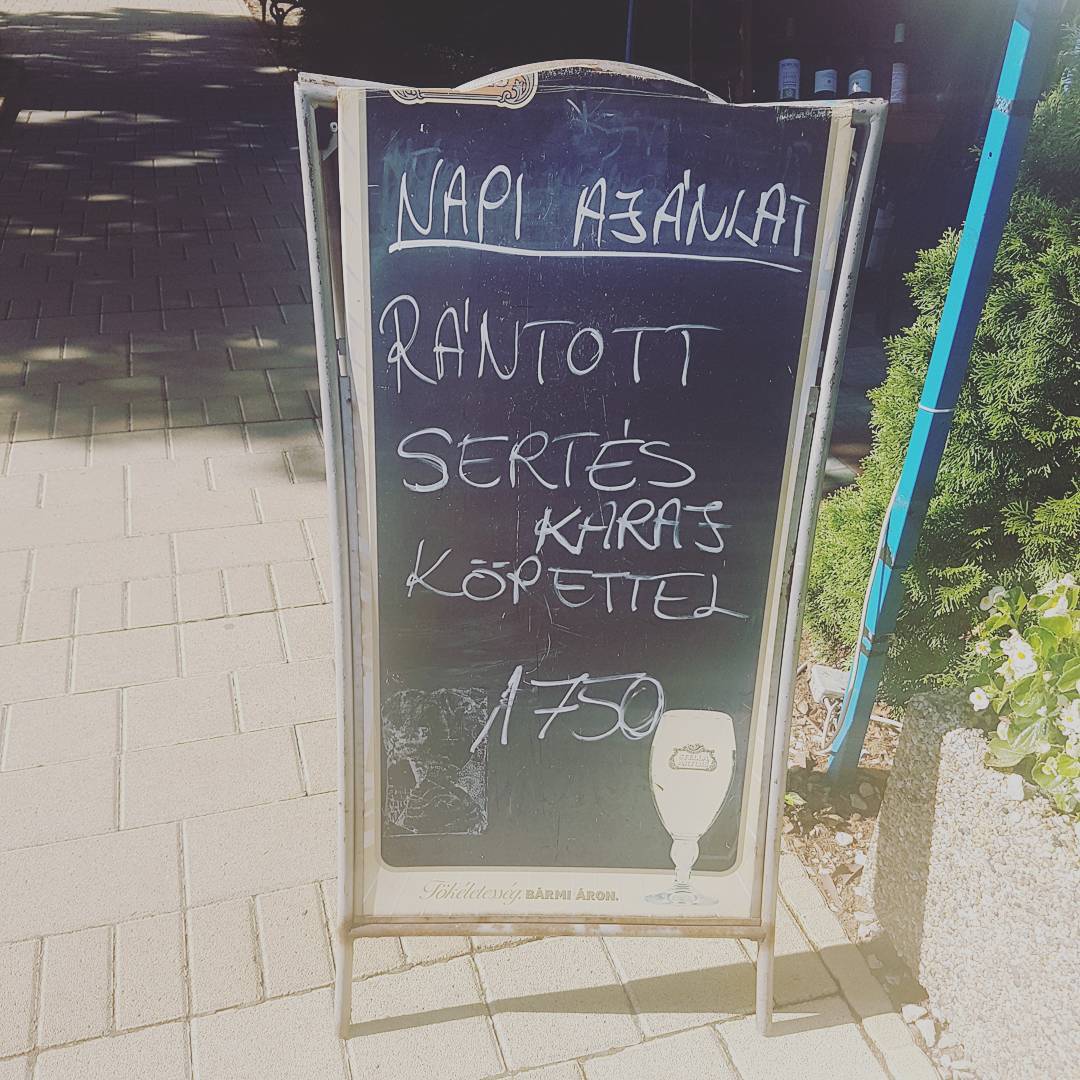 NAPI AJÁNLAT
RÁNTOTT
SERTÉS
KARAJ
KÖRETTEL
1750
STELLA ARTOIS
Tökéletesség. BÁRMI ÁRON.